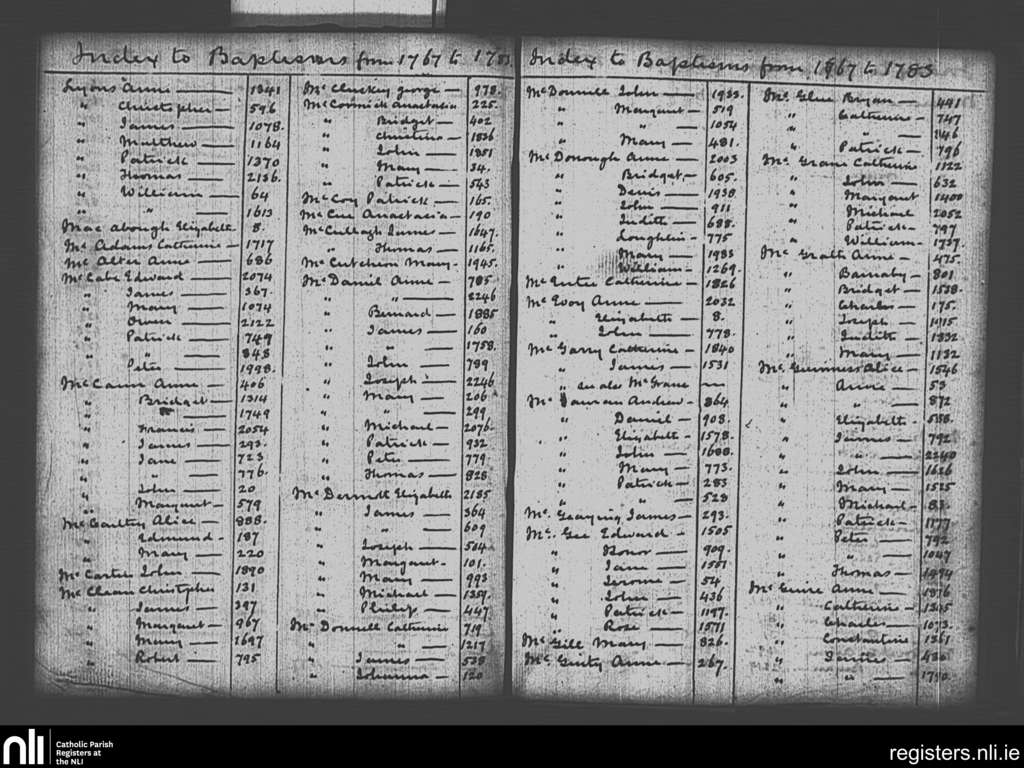 Index to Baptisms from 1767 to 1783
Lyons Anne — 1341
" Christopher — 596
" James — 1078.
" Matthew — 1164
" Patrick — 1370
" Thomas — 2136.
" William — 64
" " — 1613
Mac abough Elizabeth 8.
Mc Adams Catherine — 1717
Mc Alter Anne — 686
Mc Cabe Edward — 2074
" James — 367.
" Mary — 1074
" Owen — 2122
" Patrick — 749
" " — 848
" Peter — 1998.
Mc Cann Anne — 406
" Bridget — 1314
" " — 1749
" Francis — 2054
" James — 293.
" Jane — 723
" " — 776.
" John — 20
" Margaret — 579
Mc Carthy Alice — 888.
" Edmund — 187
" Mary — 220
Mc Carter John — 1890
Mc Clean Christopher 131
" James — 397
" Margaret — 967
" Mary — 1697
" Robert — 795
Mc Cluskey george — 978.
Mc Cormick Anastasia 225.
" Bridget — 402
" Christina — 1836
" John — 1351
" Mary — 34.
" Patrick — 543
Mc Coy Patrick — 165.
Mc Cue Anastasia — 190
Mc Cullagh James — 1647.
" Thomas — 1165.
Mc Cutcheon Mary — 1945.
Mc Daniel Anne — 785.
" " — 2246
" Bernard — 1885
" James — 160
" " — 1758.
" John — 789
" Joseph — 2246
" Mary — 206
" " — 299
" Michael — 2076.
" Patrick — 932
" Peter — 779
" Thomas — 828
Mc Dermott Elizabeth 2185
" James — 364
" " — 609
" Joseph — 504
" Margaret — 101.
" Mary — 993
" Michael — 1359.
" Philip — 447
Mc Donnell Catherine 719
" " — 1217
" James — 538
" Johanna — 120
Index to Baptisms from 1767 to 1783
Mc Donnell John — 1933.
" Margaret — 519
" " — 1054
" Mary — 481.
Mc Donough Anne — 2003
" Bridget — 605.
" Denis — 1938
" John — 911
" Judith — 688.
" Loughlin — 775
" Mary — 1983
" William — 1269.
Mc Entee Catherine — 1826
Mc Evoy Anne — 2032
" Elizabeth — 8.
" John — 778.
Mc Garry Catherine — 1840
" James — 1531
" see also McGrane —
Mc Gauran Andrew — 864
" Daniel — 908.
" Elizabeth — 1578.
" John — 1688.
" Mary — 773.
" Patrick — 283
" " — 528
Mc James — 293.
Mc Gee Edward — 1505
" Honor — 909.
" Jane — 1561
" Jerome — 54
" John — 436
" Patrick — 1197.
" Rose — 1571
Mc Gill Mary — 826.
Mc Ginty Anne — 267.
Mc Glue Bryan — 491
" Catherine — 747
" " — 146
" Patrick — 796
Mc Grane Catherine 1122
" John — 632
" Margaret 1400
" Michael 2052
" Patrick — 797
" William — 1737.
Mc Grath Anne — 475.
" Barnaby — 801
" Bridget — 1538.
" Charles — 175.
" Joseph — 1915
" Judith — 1332
" Mary — 1132
Mc Guinness Alice — 1546
" Anne — 53
" " — 872
" Elizabeth — 558.
" James — 792
" " — 2240
" John — 1626
" Mary — 1525
" Michael — 83.
" Patrick — 1177
" Peter — 792
" " — 1047
" Thomas — 1494
Mc Guire Anne — 1876
" Catherine — 1305
" Charles — 1073.
" Constantine 1361
" James — 430
" " — 1790.
nli
Catholic Parish
Registers at
the NLI
registers.nli.ie